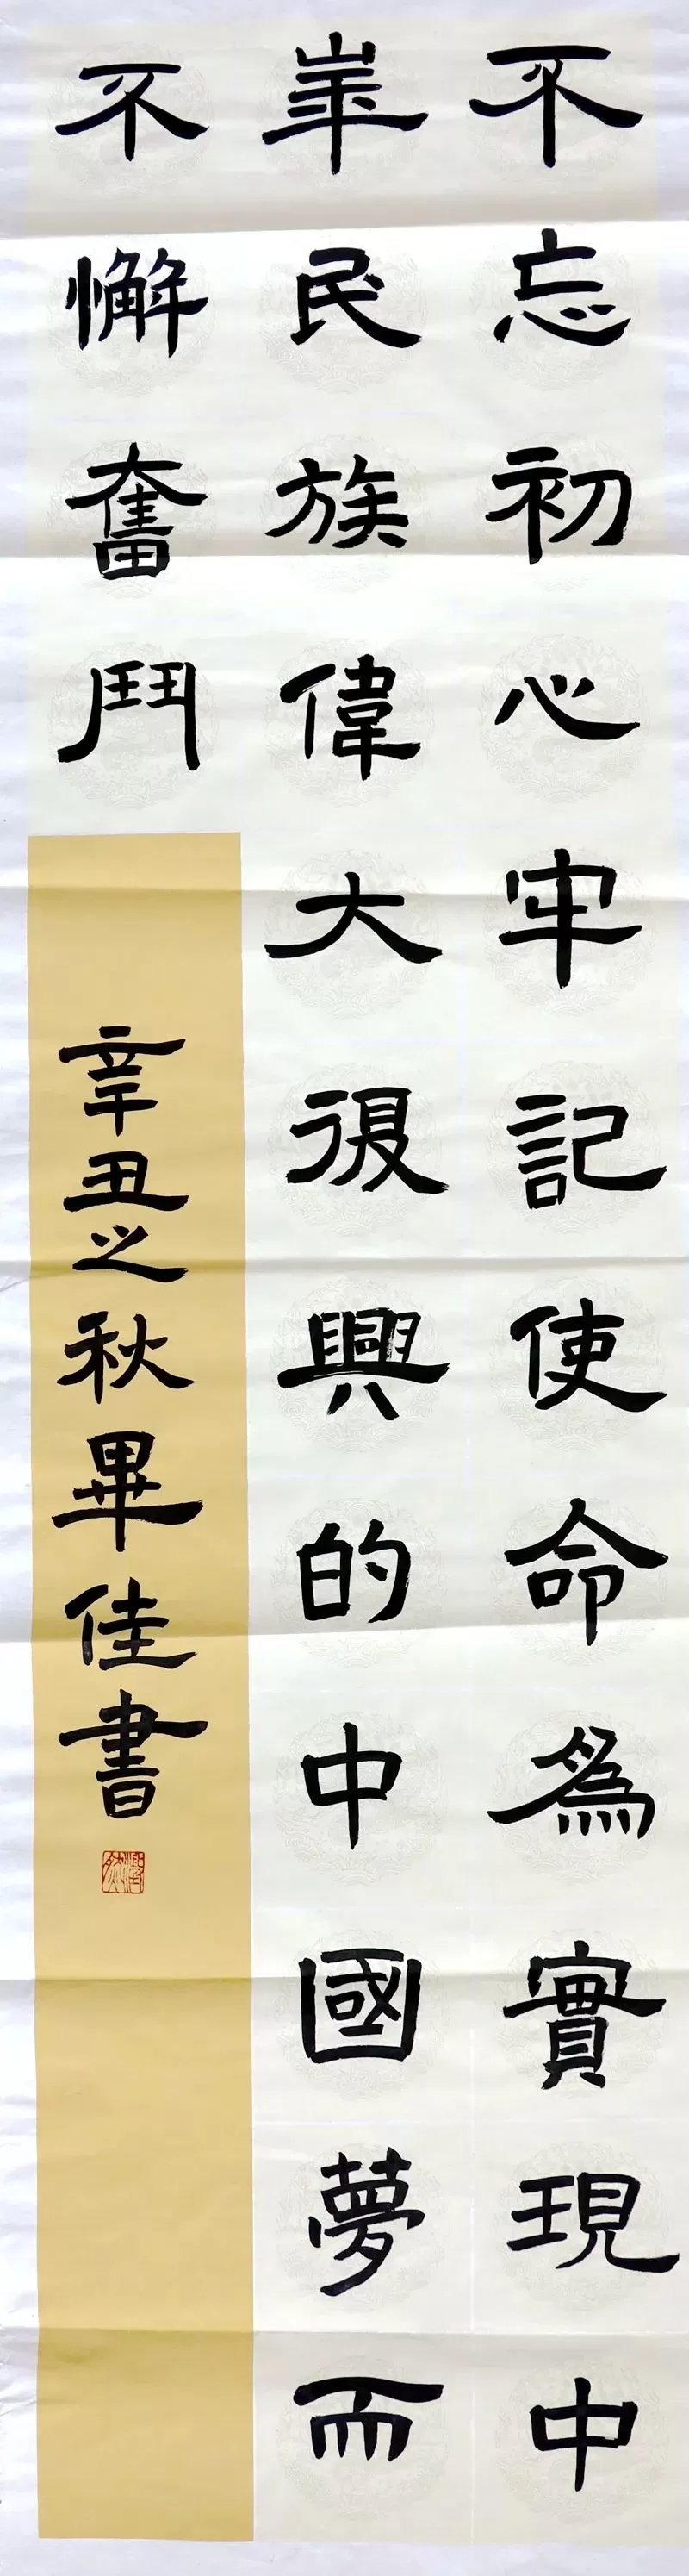 不忘初心牢記使命為實現中
崋民族偉大復興的中國夢而
不懈奮鬥
辛丑之秋畢佳書